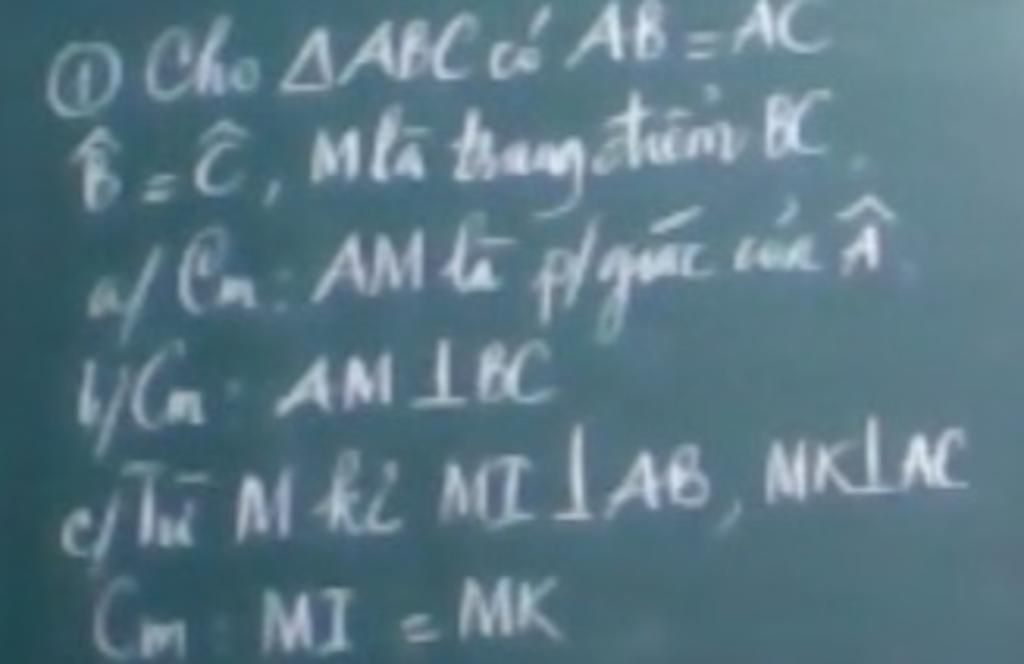 ① Cho ΔABC có AB = AC
B̂ = Ĉ, M là trung điểm BC.
a/ Cm: AM là p/giác của Â.
b/ Cm: AM ⊥ BC
c/ Từ M kẻ MI ⊥ AB, MK ⊥ AC
Cm: MI = MK